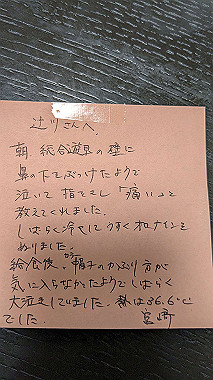 辻川さんへ
朝、総合遊具の壁に
鼻の下をぶつけたようで
泣いて指さし「痛い」と
教えてくれました。
しばらく冷やしてうすくオロナインを
ぬりました。
給食後、帽子のかぶり方が
気に入らなかったようでしばらく
大泣きしていました。熱は36.6℃
でした。 宮崎